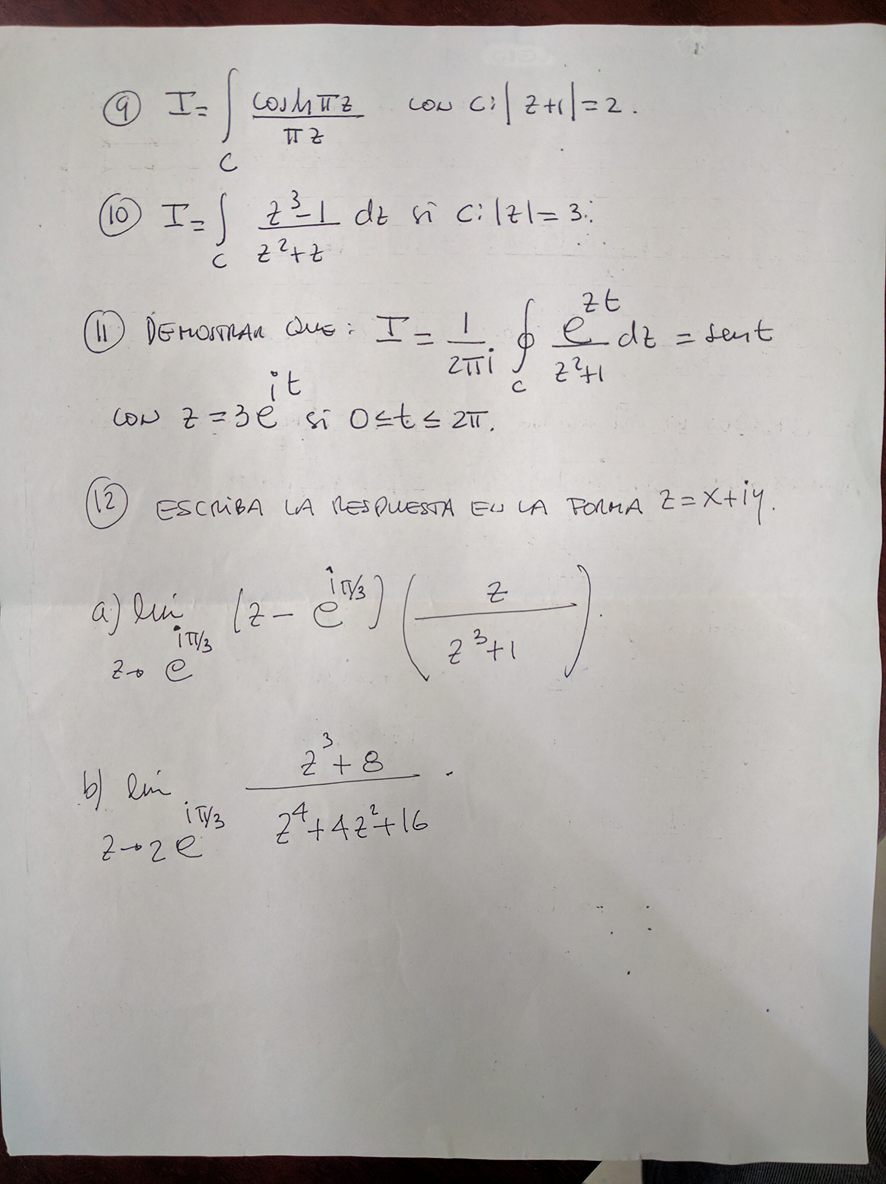 ⑨ I = ∫_C (cosh πz)/(πz) con C: |z+1| = 2.
⑩ I = ∫_C (z³-1)/(z²+z) dz si C: |z| = 3.
⑪ DEMOSTRAR QUE: I = 1/(2πi) ∮_C e^(zt)/(z²+1) dz = sent
CON z = 3e^(it) si 0 ≤ t ≤ 2π.
⑫ ESCRIBA LA RESPUESTA EN LA FORMA z = x+iy.
a) lim_(z→e^(iπ/3)) (z - e^(iπ/3)) (z/(z³+1)).
b) lim_(z→2e^(iπ/3)) (z³+8)/(z⁴+4z²+16).